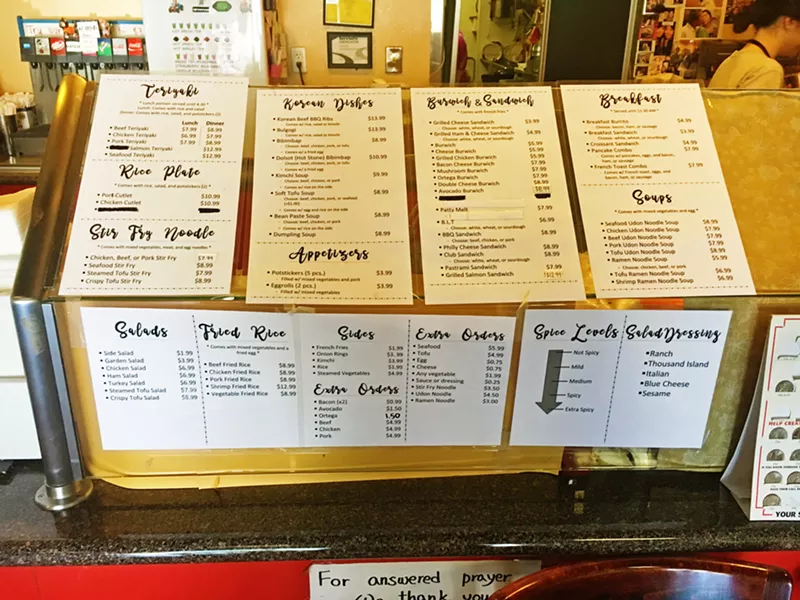 Teriyaki
* Lunch portion served until 4:30 *
Lunch: Comes with rice and salad
Dinner: Comes with rice, salad, and potstickers (2) *
Lunch Dinner
• Beef Teriyaki $7.99 $8.99
• Chicken Teriyaki $6.99 $7.99
• Pork Teriyaki $7.99 $8.99
• Salmon Teriyaki $12.99
• Seafood Teriyaki $12.99
Rice Plate
* Comes with rice, salad, and potstickers (2) *
• Pork Cutlet $10.99
• Chicken Cutlet $10.99
Stir Fry Noodle
* Comes with mixed vegetables, meat, and egg noodles *
• Chicken, Beef, or Pork Stir Fry $7.99
• Seafood Stir Fry $8.99
• Steamed Tofu Stir Fry $7.99
• Crispy Tofu Stir Fry $8.99
Korean Dishes
• Korean Beef BBQ Ribs $13.99
- Comes w/ rice, salad or kimchi
• Bulgogi $13.99
- Comes w/ rice, salad or kimchi
• Bibimbap $8.99
Choose: beef, chicken, pork, or tofu
- Comes w/ a fried egg
• Dolsot (Hot Stone) Bibimbap $10.99
Choose: beef, chicken, pork, or tofu
- Comes w/ a fried egg
• Kimchi Soup $9.99
Choose: beef, chicken, or pork
- Comes w/ rice on the side
• Soft Tofu Soup $8.99
Choose: beef, chicken, pork, or seafood
(+$1.00)
- Comes w/ egg and rice on the side
• Bean Paste Soup $8.99
Choose: beef, chicken, or pork
- Comes w/ rice on the side
• Dumpling Soup $8.99
Appetizers
• Potstickers (5 pcs.) $3.99
- Filled w/ mixed vegetables and pork
• Eggrolls (2 pcs.) $3.99
- Filled w/ mixed vegetables
Burwich & Sandwich
* Comes with French fries *
• Grilled Cheese Sandwich $3.99
Choose: white, wheat, or sourdough
• Grilled Ham & Cheese Sandwich $4.99
Choose: white, wheat, or sourdough
• Burwich $5.99
• Cheese Burwich $5.99
• Grilled Chicken Burwich $5.99
• Bacon Burwich $7.99
• Mushroom Burwich $7.99
• Ortega Burwich $7.99
• Double Cheese Burwich $8.99
• Avocado Burwich $8.99
• Patty Melt
• B.L.T $6.99
Choose: white, wheat, or sourdough
• BBQ Sandwich $8.99
Choose: beef, chicken, or pork
• Philly Cheese Sandwich $8.99
• Club Sandwich $8.99
Choose: white, wheat, or sourdough
• Pastrami Sandwich $7.99
• Grilled Salmon Sandwich $12.99
Breakfast
* Served with until 11:00 AM *
• Breakfast Burrito $4.99
Choose: bacon, ham, or sausage
• Breakfast Sandwich $3.99
Choose: white, wheat, or sourdough
• Croissant Sandwich $4.99
• Pancake Combo $7.99
- Comes w/ pancakes, eggs, and bacon,
ham, or sausage
• French Toast Combo $7.99
- Comes w/ French toast, eggs, and
bacon, ham, or sausage
Soups
* Comes with mixed vegetables and egg *
• Seafood Udon Noodle Soup $8.99
• Chicken Udon Noodle Soup $7.99
• Beef Udon Noodle Soup $7.99
• Pork Udon Noodle Soup $7.99
• Tofu Udon Noodle Soup $8.99
• Ramen Noodle Soup $5.99
Choose: chicken, beef, or pork
• Tofu Ramen Noodle Soup $6.99
• Shrimp Ramen Noodle Soup $6.99
Salads
• Side Salad $1.99
• Garden Salad $3.99
• Chicken Salad $6.99
• Ham Salad $6.99
• Turkey Salad $6.99
• Steamed Tofu Salad $7.99
• Crispy Tofu Salad $5.99
Fried Rice
* Comes with mixed vegetables and a
fried egg *
• Beef Fried Rice $8.99
• Chicken Fried Rice $8.99
• Pork Fried Rice $8.99
• Shrimp Fried Rice $12.99
• Vegetable Fried Rice $8.99
Sides
• French Fries $1.99
• Onion Rings $3.99
• Kimchi $1.99
• Rice $1.99
• Steamed Vegetables $4.99
Extra Orders
• Bacon (x2) $0.99
• Avocado $1.50
• Ortega 1.50
• Beef $4.99
• Chicken $4.99
• Pork $4.99
Extra Orders
• Seafood $5.99
• Tofu $4.99
• Egg $0.75
• Cheese $0.75
• Any vegetable $1.99
• Sauce or dressing $0.25
• Stir Fry Noodle $3.50
• Udon Noodle $4.50
• Ramen Noodle $3.00
Spice Levels
Not Spicy
Mild
Medium
Spicy
Extra Spicy
Salad Dressing
•Ranch
•Thousand Island
•Italian
•Blue Cheese
•Sesame
HELP CREA
YOUR S
For answered prayer
We thank you